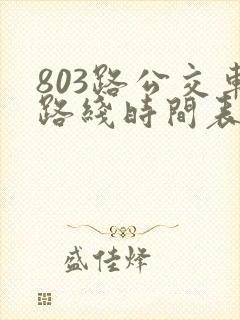 803路公交車
路綫時間表
盛佳烽